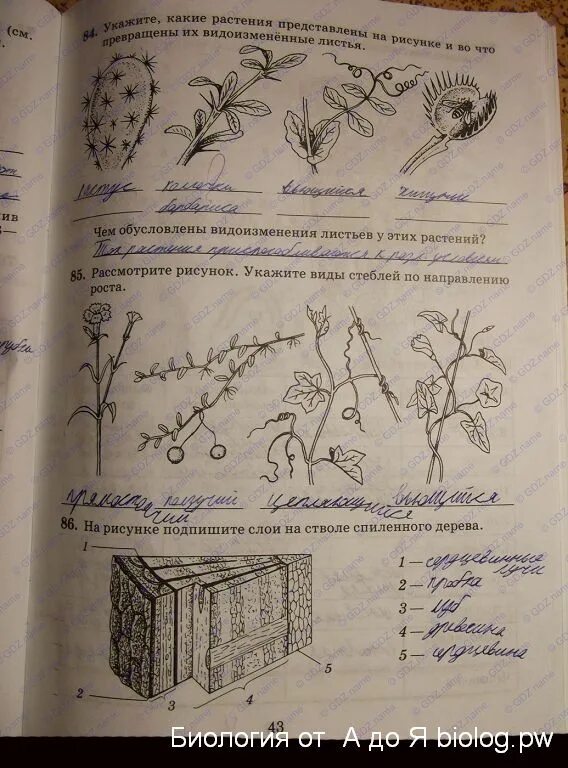 (см.
84. Укажите, какие растения представлены на рисунке и во что
превращены их видоизменённые листья.
кактус колючки вьющийся хищник
барбариса
Чем обусловлены видоизменения листьев у этих растений?
Так растения приспосабливаются к разн. условиям
85. Рассмотрите рисунок. Укажите виды стеблей по направлению
роста.
прямостоячий ползучий цепляющийся вьющийся
86. На рисунке подпишите слои на стволе спиленного дерева.
1 — сердцевинные лучи
2 — пробка
3 — луб
4 — древесина
5 — сердцевина
1
2 3 4 5
43
Биология от А до Я biolog.pw
© GDZ.name